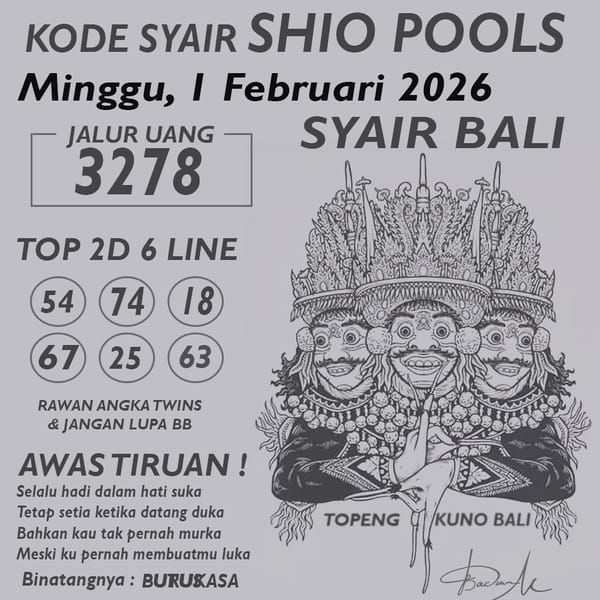 KODE SYAIR SHIO POOLS
Minggu, 1 Februari 2026
JALUR UANG
3278
SYAIR BALI
TOP 2D 6 LINE
54 74 18
67 25 63
RAWAN ANGKA TWINS
& JANGAN LUPA BB
AWAS TIRUAN !
Selalu hadi dalam hati suka
Tetap setia ketika datang duka
Bahkan kau tak pernah murka
Meski ku pernah membuatmu luka
Binatangnya :
TOPENG KUNO BALI